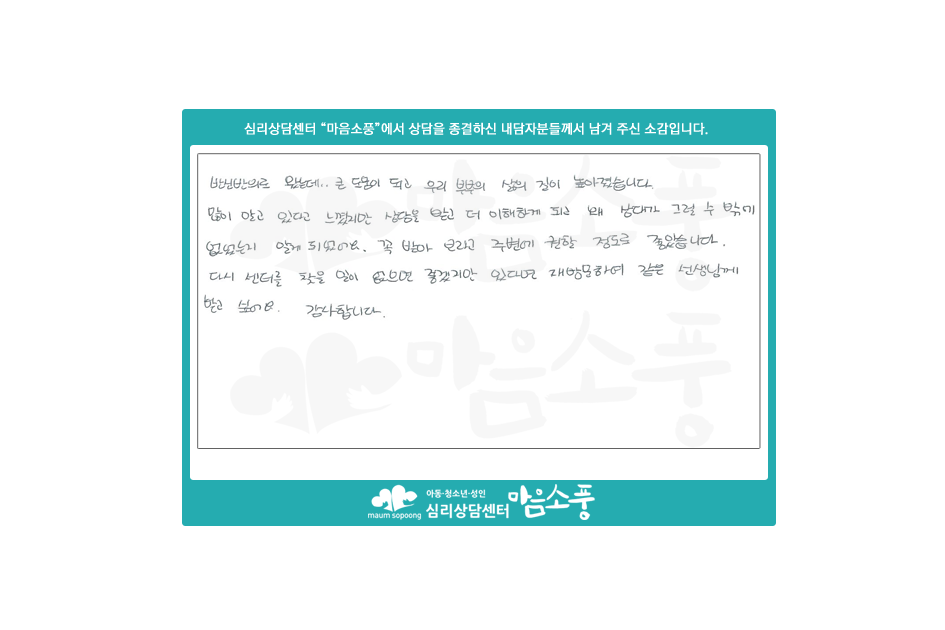 심리상담센터 “마음소풍”에서 상담을 종결하신 내담자분들께서 남겨 주신 소감입니다.
반신반의로 왔는데.. 큰 도움이 되고 우리 부부의 삶의 질이 높아졌습니다.
많이 알고 있다고 느꼈지만 상담을 받고 더 이해하게 되고 왜 상대가 그럴 수 밖에
없었는지 알게 되었어요. 꼭 받아 보라고 주변에 권할 정도로 좋았습니다.
다시 센터를 찾을 일이 없으면 좋겠지만 있다면 재방문하여 같은 선생님께
받고 싶어요. 감사합니다.
마음소풍
마음소풍
아동·청소년·성인
maum sopoong 심리상담센터 마음소풍